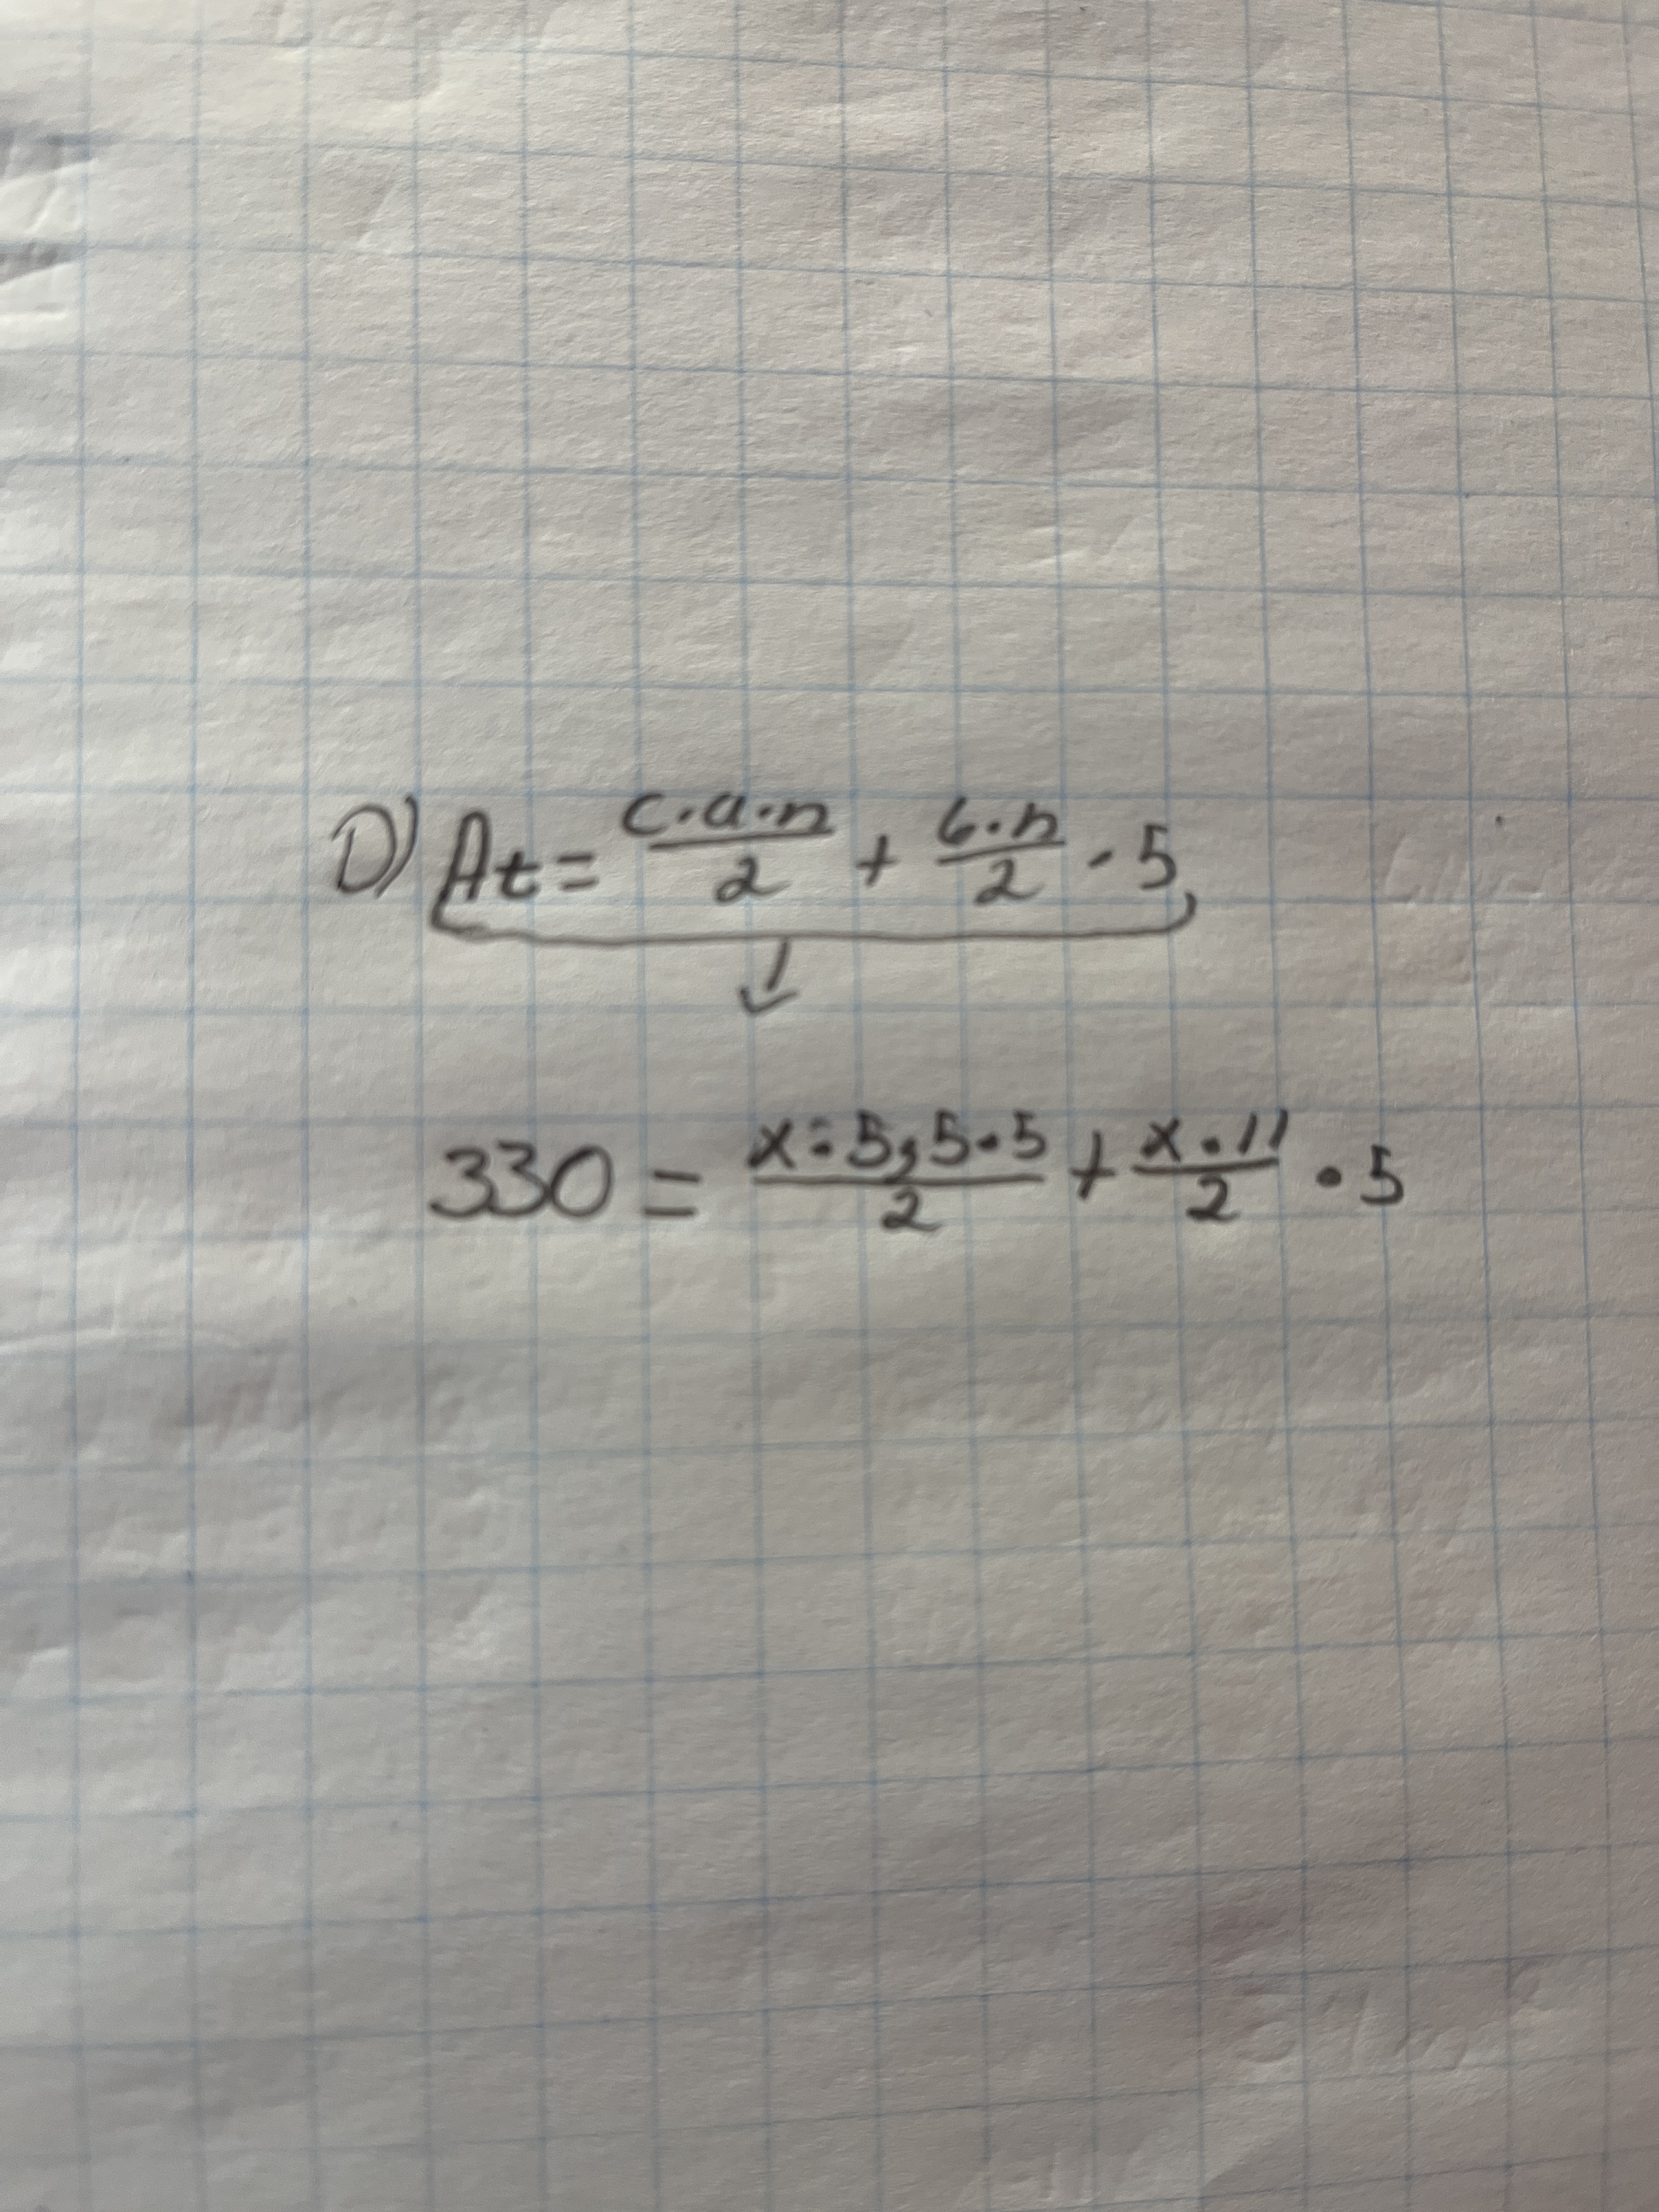 D) At = c·a·n/2 + b·h/2 · 5
330 = x·5,5·5/2 + x·11/2 · 5